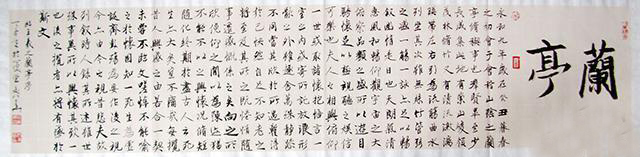 蘭亭
永和九年歲在癸丑暮春
之初會于會稽山陰之蘭
亭修禊事也羣賢畢至少
長咸集此地有崇山峻領
茂林脩竹又有清流激湍
暎帶左右引以為流觴曲水
列坐其次雖無絲竹管弦
之盛一觴一詠亦足以暢
敘幽情是日也天朗氣清
惠風和暢仰觀宇宙之大
俯察品類之盛所以遊目
騁懷足以極視聽之娛信
可樂也夫人之相與俯仰
一世或取諸懷抱悟言一
室之內或因寄所託放浪形
骸之外雖趣舍萬殊靜躁
不同當其欣於所遇暫得
於己快然自足不知老之
將至及其所之既惓情隨
事遷感慨係之矣向之所
欣俛仰之間以為陳迹猶
不能不以之興懷況脩短隨
化終期於盡古人云死
生亦大矣豈不痛哉每攬
昔人興感之由若合一契
未嘗不臨文嗟悼不能喻
之於懷固知一死生為虛
誕齊彭殤為妄作後之視
今亦由今之視昔悲夫故
列敘時人錄其所述雖世
殊事異所以興懷其致一
也後之攬者亦將有感於
斯文